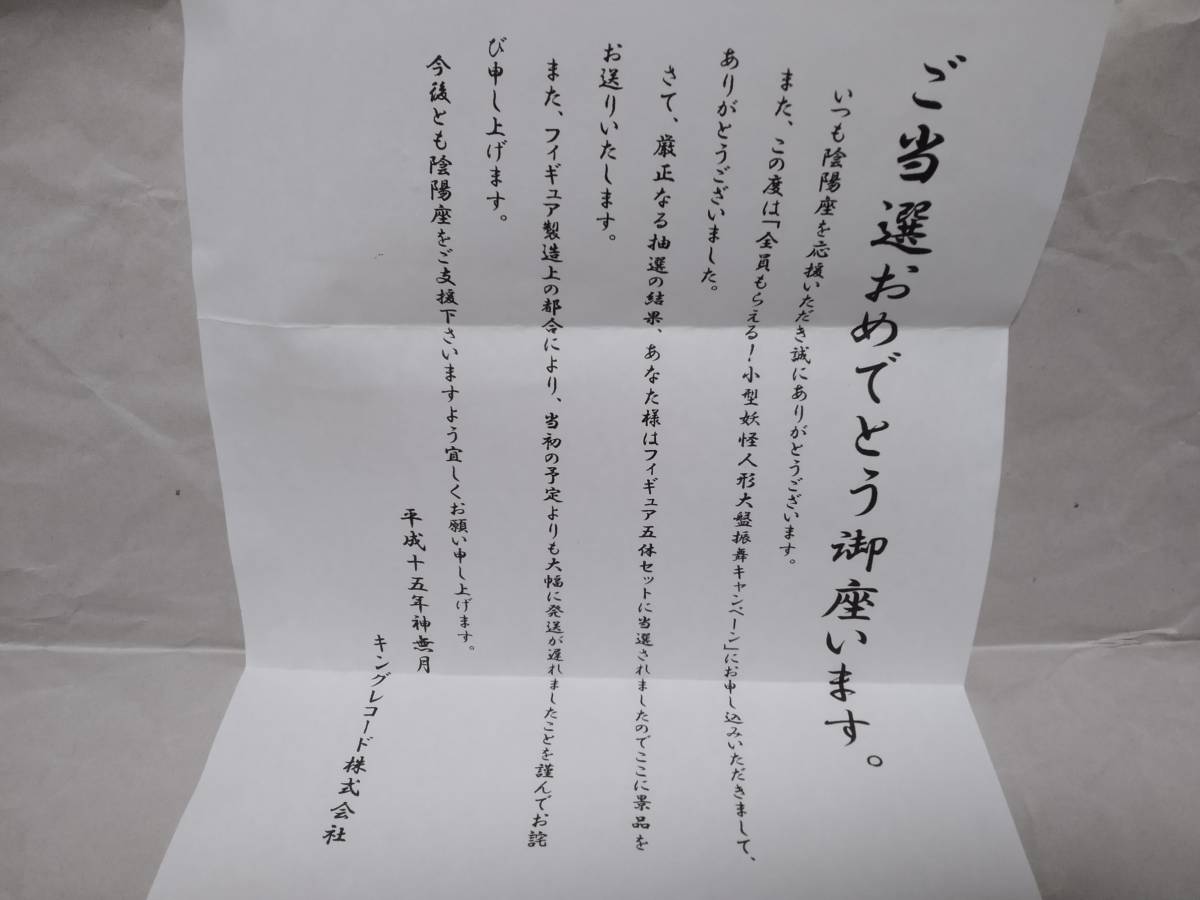 ご当選おめでとう御座います。
いつも陰陽座を応援いただき誠にありがとうございます。
また、この度は「全員もらえる!小型妖怪人形大盤振舞キャンペーン」にお申し込みいただきまして、
ありがとうございました。
さて、厳正なる抽選の結果、あなた様はフィギュア五体セットに当選されましたのでここに景品を
お送りいたします。
また、フィギュア製造上の都合により、当初の予定よりも大幅に発送が遅れましたことを謹んでお詫
び申し上げます。
今後とも陰陽座をご支援下さいますよう宜しくお願い申し上げます。
平成十五年神無月
キングレコード株式会社